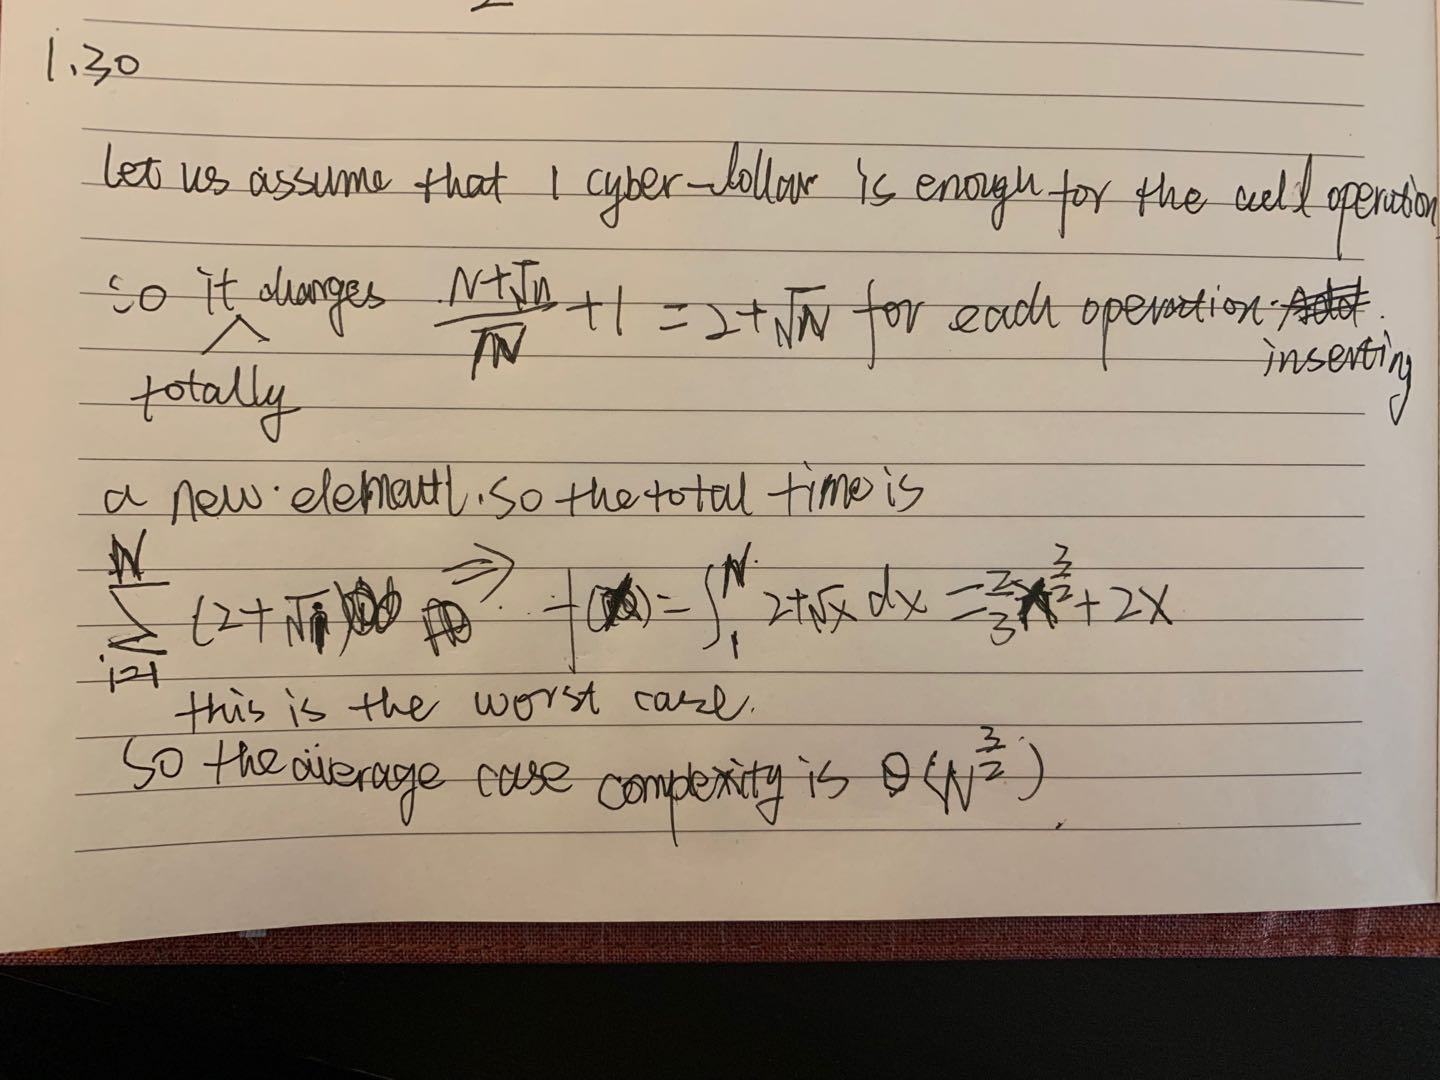 1.30
let us assume that 1 cyber-dollar is enough for the add operation
so it charges (N+√n)/√N + 1 = 2+√N for each operation. inserting
totally
a new element. so the total time is
∑_{i=1}^{N} (2+√i) ⇒ f = ∫_1^N 2+√x dx = 2/3 x^{3/2} + 2x
this is the worst case.
so the average case compexity is θ(N^{3/2})